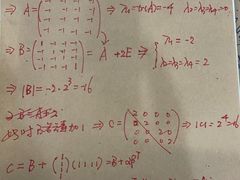 ⇒ A = (-1 -1 -1 -1 / -1 -1 -1 -1 / -1 -1 -1 -1 / -1 -1 -1 -1) ⇒ λ₁=tr(A)=-4 λ₂=λ₃=λ₄=0
⇒ B = (1 -1 -1 -1 / -1 1 -1 -1 / -1 -1 1 -1 / -1 -1 -1 1) = A + 2E ⇒ { λ₁ = -2
λ₂=λ₃=λ₄ = 2
⇒ |B| = -2·2³ = -16
⇒ C = (2 0 0 0 / 0 2 0 0 / 0 0 2 0 / 0 0 0 2) ⇒ |C| = 2⁴ = 16
C = B + (1 / 1 / 1 / 1)(1 1 1 1) = B +